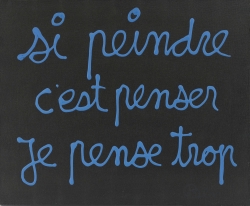 si peindre
c'est penser
Je pense trop